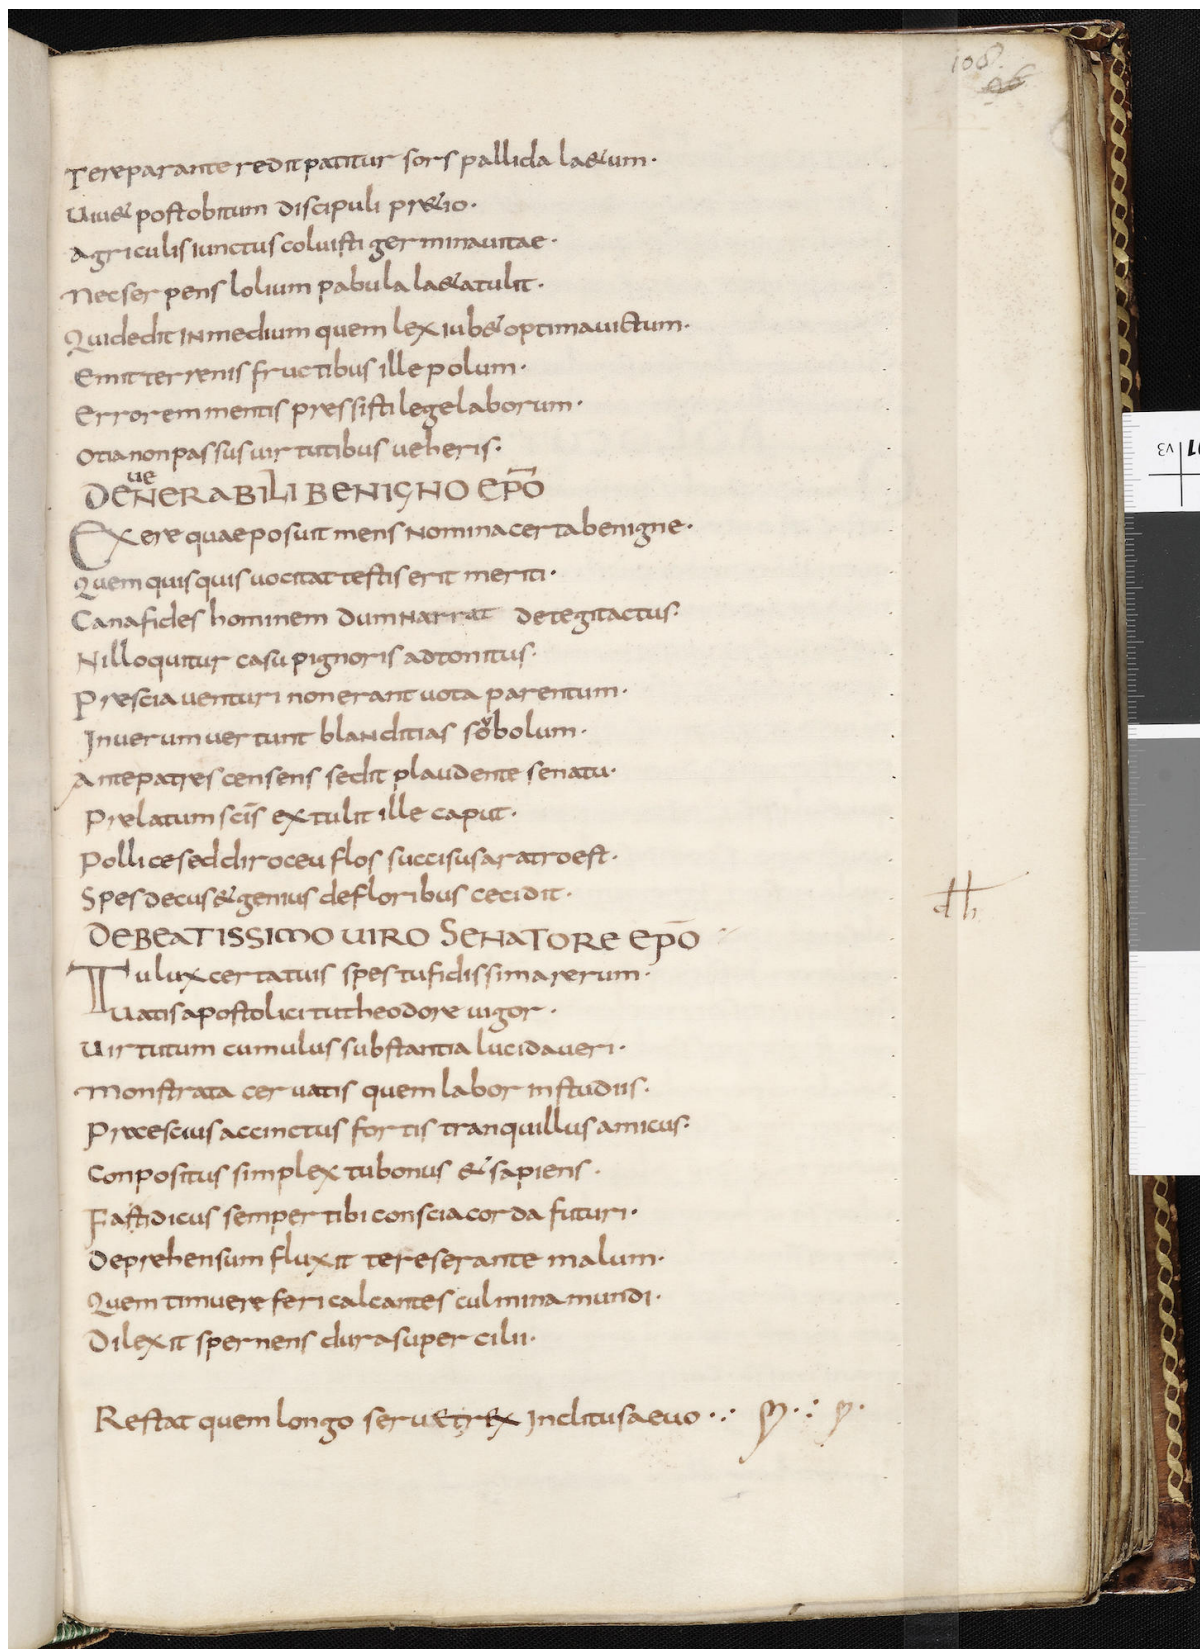 108.
26
Tereparante redit patitur sors pallida la&um·
Uiu& postobitum discipuli pr&io·
Agriculis iunctus coluisti germinauitae·
Necserpens lolium pabula la&atulit·
Quidedit inmedium quem lex iub& optimauictum·
Emit terrenis fructibus ille polum·
Errorem mentis pressisti lege laborum·
Otia non passus uirtutibus ueheris·
ue
DENERABILI BENIGNO EPŌ
Exere quae posuit mens Nomina certa benigne·
Quem quisquis uocitat testis erit meriti·
Canafides hominem dum Narrat detegit actus·
Nil loquitur casu pignoris adtonitus·
Prescia uenturi non erant uota parentum·
In uerum uertunt blanditias sobolum·
y
Ante patres censens sedit plaudente senatu·
Prelatum scīs extulit ille caput·
Pollice sed diro ceu flos succisus aratro est·
Spes decus & genius defloribus cecidit·
DE BEATISSIMO UIRO SENATORE EPŌ
dh
Tu lux certatuis spes tu fidissima rerum·
Uatis apostolici tu theodore uigor·
Uirtutum cumulus substantia lucida ueri·
Monstrata cer uatis quem labor in studiis·
Precescuis accinctus fortis tranquillus amicus·
Conpositus simplex tu bonus & sapiens·
Fastidicus semper tibi conscia corda futuri·
Deprehensum fluxit te reserante malum·
Quem timuere feri calcantes culmina mundi·
Dilexit spernens dura supercilii·
Restat quem longo seru&rex Inclitus aeuo